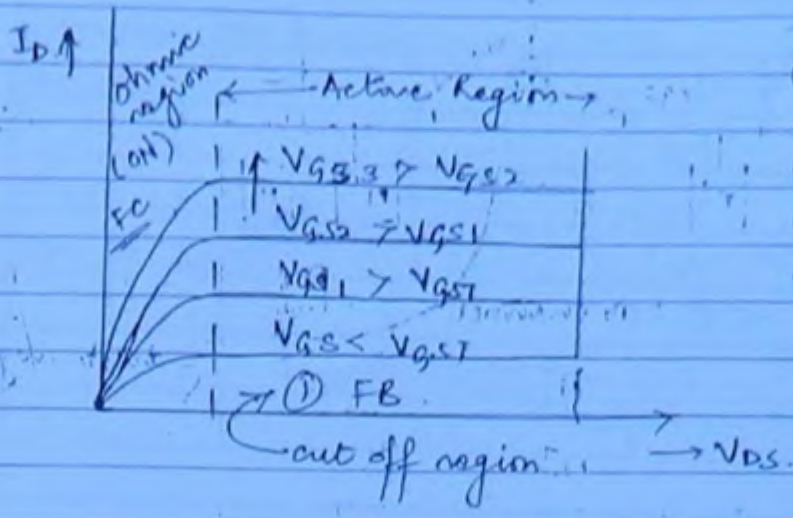 I_D ↑
Ohmic region (ON)
FC
← Active Region →
V_GS3 > V_GS2
V_GS2 > V_GS1
V_GS1 > V_GST
V_GS < V_GST
① FB.
cut off region
→ V_DS.